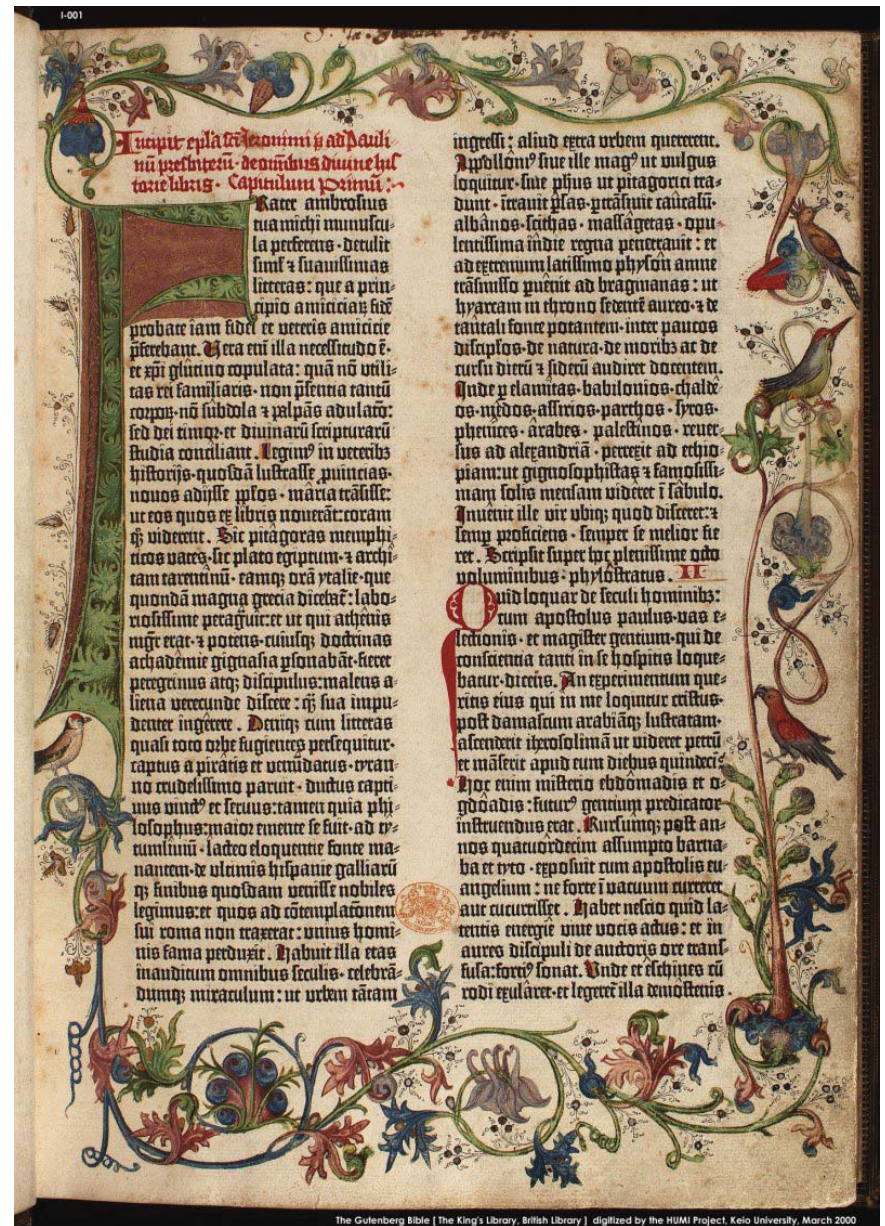 I-001
Incipit epl'a sci Jeronimi p̄ ad Pauli⸗
nū presbiterū · de om̄ibus divine his
torie libris · Capitulum Primū :
Frater ambrosius
tua michi munuscu⸗
la perferens · detulit
siml' ⁊ suavissimas
litteras : que a prin⸗
cipio amiciciaꝝ fidē
probate iam fidei et veteris amicicie
p̄ferebant. Vera enī illa necessitudo ē ·
et xp̄i glutino copulata : quā nō utili⸗
tas rei familiaris · non p̄sentia tantū
corpoꝝ · nō subdola ⁊ palpās adulatō :
sed dei timor · et divinarū scripturarū
studia conciliant . Legimꝰ in veteribꝫ
historijs · quosdā lustrasse ꝓvincias ·
novos adijsse pp̄los · maria trāsisse :
ut eos quos ex libris noverāt : coram
qꝫ viderent . Sic pitagoras memphi⸗
ticos vates · sic plato egiptum · ⁊ archi⸗
tam tarentinū · eamqꝫ orā ytalie · que
quondā magna grecia dicebat̄ : labo⸗
riosissime peragᷓvit : et ut qui athenis
mgr̄ erat · ⁊ potens · cuiusqꝫ doctrinas
achademie gignasia ꝑsonabāt · fieret
peregrinus atqꝫ discipulus : malens a⸗
liena verecunde discere : qꝫ̄ sua impu⸗
denter ingerere . Deniqꝫ cum litteras
quasi toto orbe fugientes persequitur ·
captus a piratis et venūdatus · tyran⸗
no crudelissimo paruit · ductus capti⸗
vus vinctꝰ et servus : tamen quia phi⸗
losophus : maior emente se fuit · ad ty⸗
tumliviū · lacteo eloquentie fonte ma⸗
nantem · de ultimis hispanie galliarū
qꝫ finibus quosdam venisse nobiles
legimus : et quos ad cōtemplatōnem
sui roma non traxerat : unius homi⸗
nis fama perduxit . Habuit illa etas
inauditum omnibus seculis · celebrā⸗
dumqꝫ miraculum : ut urbem tātam
ingressi : aliud extra urbem quererent.
Appollōiꝰ sive ille magꝰ ut vulgus
loquitur · sive ph̄us ut pitagorici tra⸗
dunt · itravit ꝑsas · ꝑtrāsivit caucasū ·
albanos · scithas · massagetas · opu⸗
lentissima indie regna penetravit : et
ad extremum latissimo physon amne
trāsmisso ꝑvenit ad bragmanas : ut
hyarcam in throno sedentē aureo · ⁊ de
tantali fonte potantem · inter paucos
discipl̄os · de natura · de moribꝫ ac de
cursu dierū ⁊ siderū audiret docentem.
Inde ꝑ elamitas · babilonios · chalde⸗
os · medos · assirios · parthos · syros ·
phenices · arabes · palestinos · rever⸗
sus ad alexandriā · perrexit ad ethio⸗
piam : ut gignosophistas ⁊ famosissi⸗
mam solis mensam videret ī sabulo.
Invenit ille vir ubiqꝫ quod disceret : ⁊
semꝑ proficiens · semper se melior fie
ret . Scripsit super hoc plenissime octo
voluminibus : phylostratus . II
Quid loquar de seculi hominibꝫ :
cum apostolus paulus · vas e⸗
lectionis · et magister gentium · qui de
conscientia tanti in se hospitis loque⸗
batur · dicens. An experimentum que⸗
ritis eius qui in me loquitur cristus ·
post damascum arabiāqꝫ lustratam ·
ascenderit iherosolimā ut videret petrū
et māserit apud eum diebus quindeci :
Hoc enim misterio ebdomadis et o⸗
gdoadis : futurꝰ gentium predicator
instruendus erat . Rursumqꝫ post an⸗
nos quatuordecim assumpto barna⸗
ba et tyto · exposuit cum apostolis eu⸗
angelium : ne forte ī vacuum curreret
aut cucurrisset . Habet nescio quid la⸗
tentis energie vive vocis actus : et in
aures discipuli de auctoris ore trans⸗
fusa : fortiꝰ sonat. Unde et eschines cū
rodi exularet · et legeret̄ illa demostenis .
The Gutenberg Bible [ The King's Library, British Library ] digitized by the HUMI Project, Keio University, March 2000